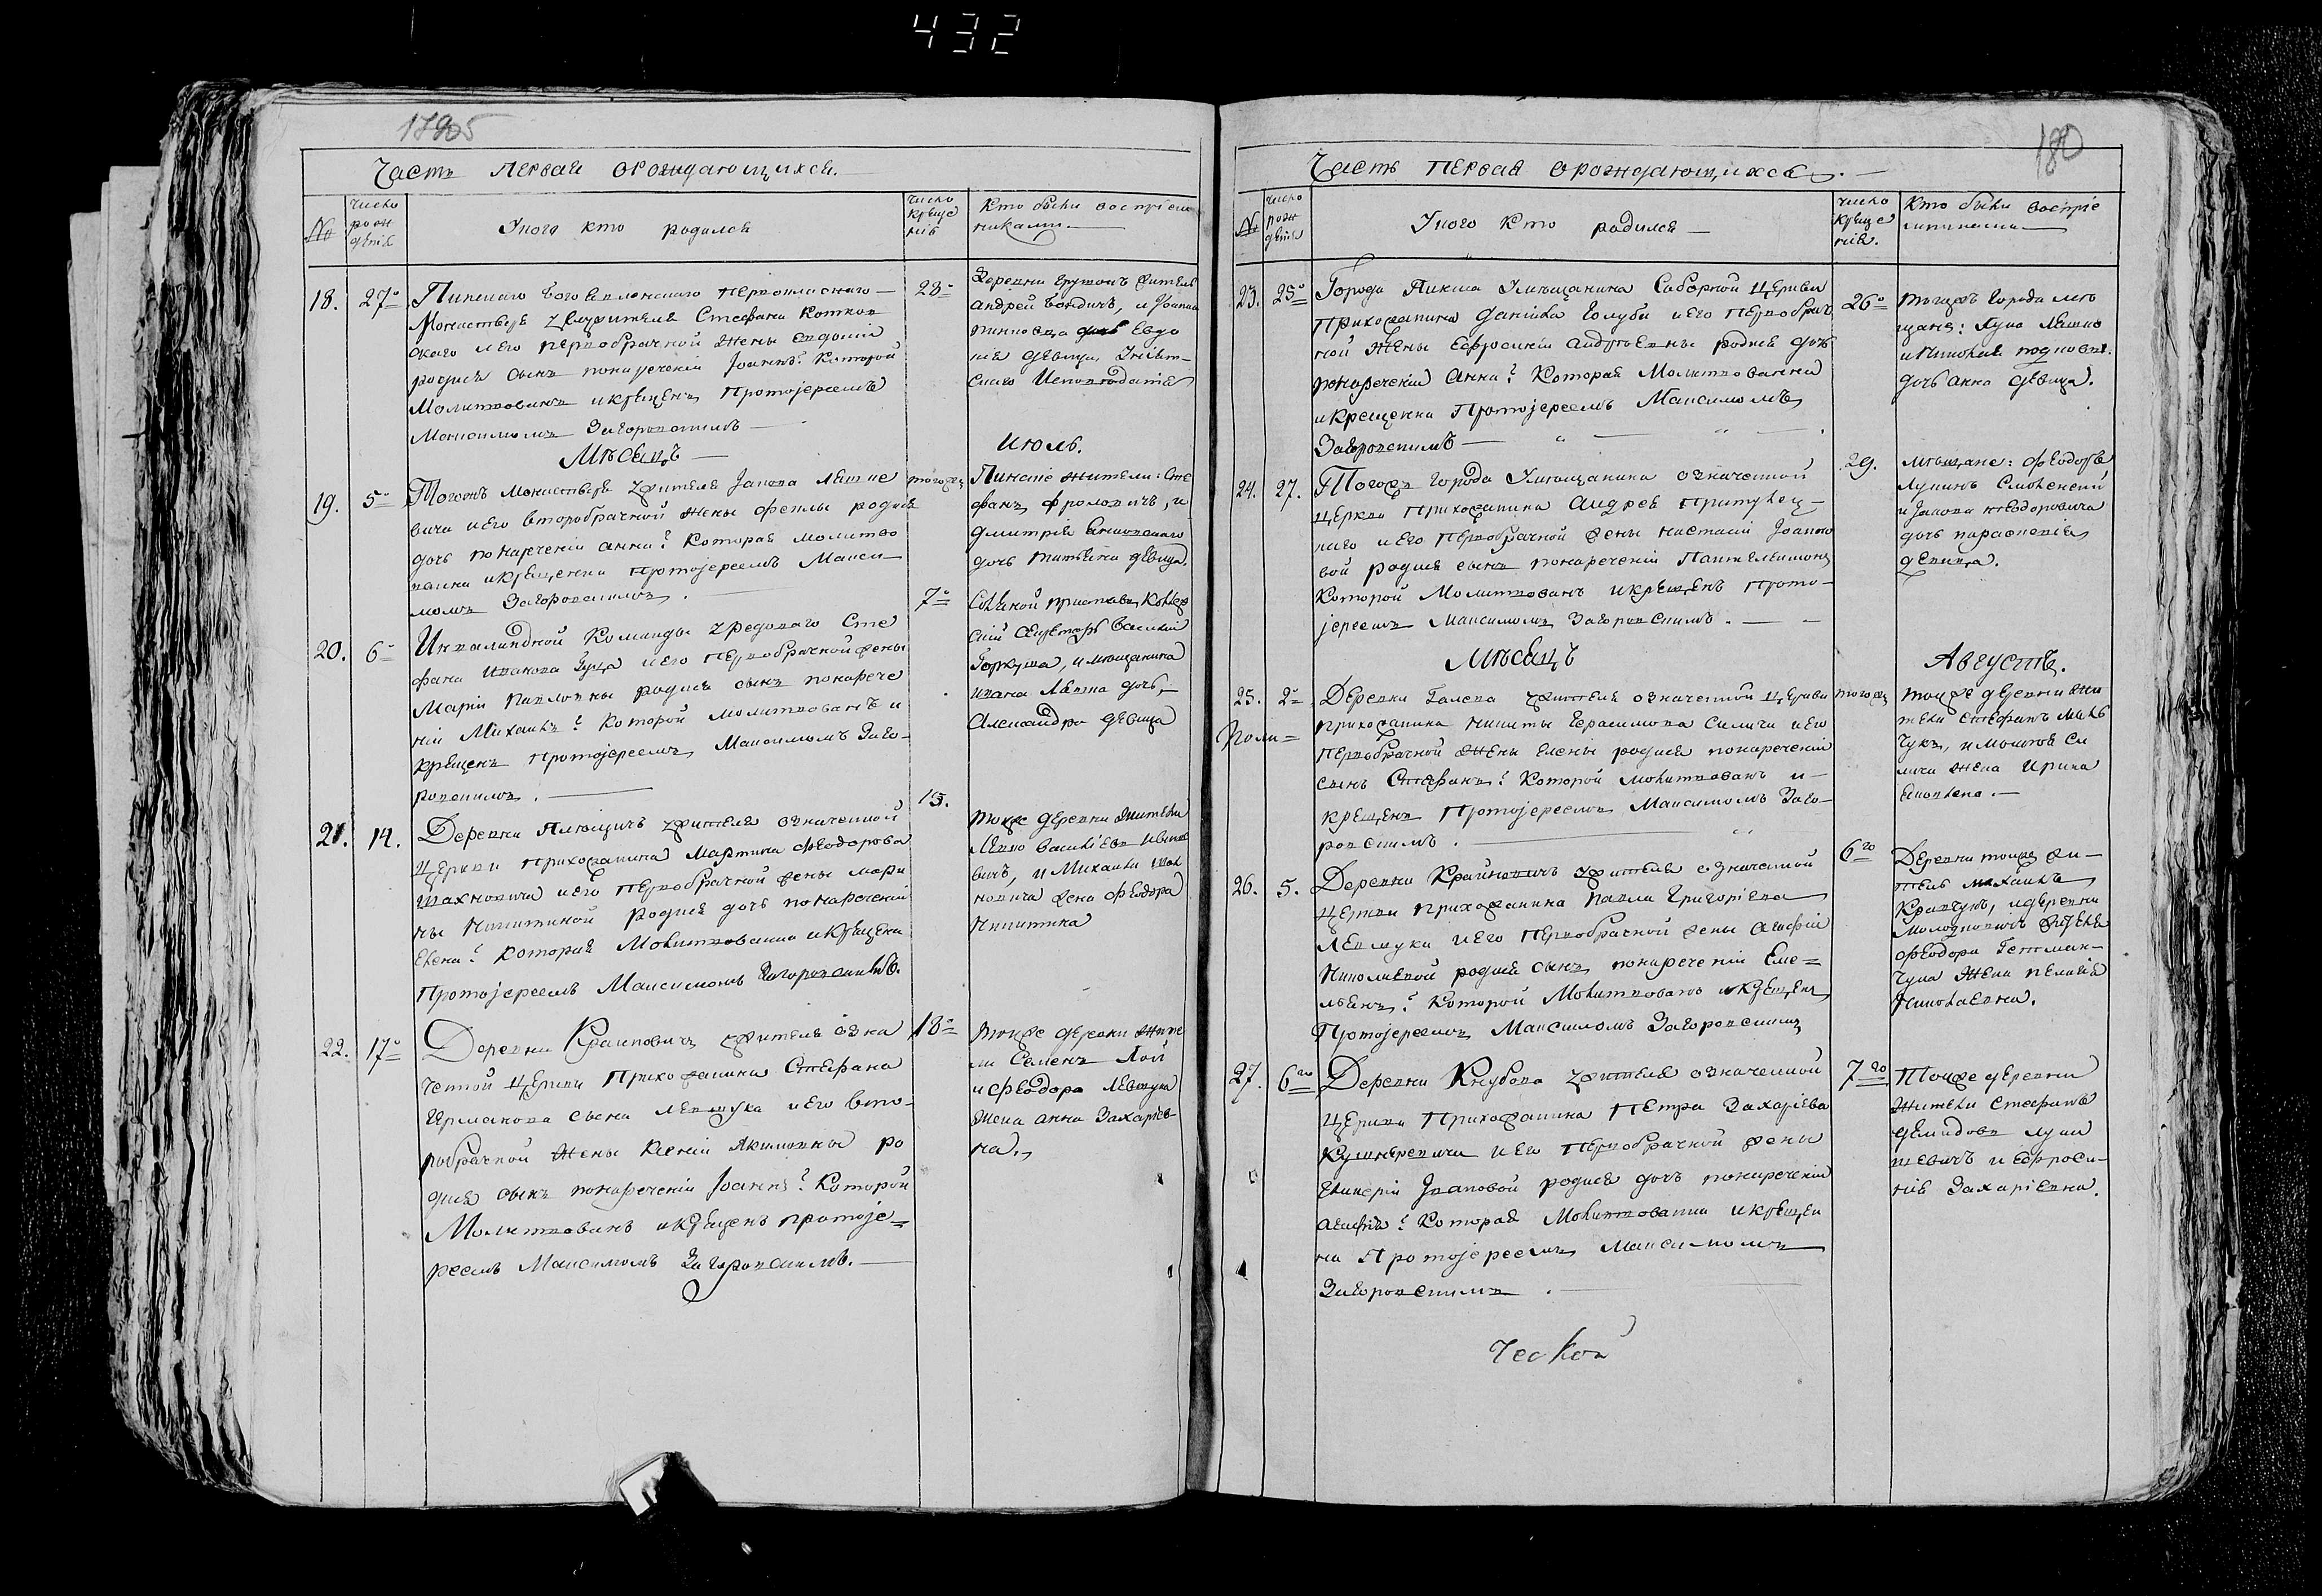 432
1795
Часть Первая орождающихся.
№
число рож денія
Укого кто родился
число креще нія
Кто были воспріем никами
18. 27
Пинскаго Богоявленскаго первокласнаго
Монастыря служителя Стефана
скаго иего первобрачной жены Евдокіи
родися сынъ понареченіи Іоаннъ: Которой
Молитвованъ икрещенъ Протоіереемъ
Максимомъ Загоровскимъ
28
Деревни жителъ
Андрей и Іоанна
дочь Евдо
кія девица Уніят-
скаго Исповѣданія
Мѣсяцъ
Июль.
19. 5
Тогожъ Монастыря жителя Іакова
вича иего второбрачной жены Феклы родися
дочь понареченіи анна: Которая молитво
ванна икрещенна Протоіереемъ Макси
момъ Загоровскимъ.
тогожъ
Пинскіе жители: Сте
фанъ Фроловичъ, и
Дмитрія
дочь Татьяна девица.
20. 6
Инвалидной Команды рядоваго Сте
фана Иванова иего первобрачной жены
Маріи Павловны родися сынъ понарече
ніи Михаилъ: Которой молитвованъ и
крещенъ Протоіереемъ Максимомъ Заго-
ровскимъ.
7
приставъ Коллеж
скій Секретарь Василій
Горкуша, и мещанина
ивана дочь
Александра девица
21. 14.
Деревни жителя означенной
Церкви Прихожанина Мартина Феодорова
Шахновича иего первобрачной жены Мари
ны Никитиной родися дочь понареченіи
Елена: Которая Молитвованна икрещена
Протоіереемъ Максимомъ Загоровскимъ.
15.
тоиже деревни жители
Василіевъ
вичъ, и Михаила Шах
новича жена Феодора
Никитина
22. 17
Деревни Крайновичъ жителя озна
ченной Церкви Прихожанина Стефана
Ермакова сына Левшука иего вто-
робрачной жены Ксеніи Якимовны ро
дися сынъ понареченіи Іоаннъ: Которой
Молитвованъ икрещенъ протоіе-
реемъ Максимомъ Загоровскимъ.
18
тоиже деревни жите
ли Семенъ
и Феодора Левшука
жена анна Захаріев-
на.
180
Часть Первая орождающихся.
№
число рож денія
Укого кто родился
число креще нія.
Кто были воспріе мниками
23. 25
Города Пинска Умещанина Саборной Церкви
Прихожанина Даніила Голуба иего первобрач
ной жены Ефросиніи Андреевны родися дочь
понареченіи Анна: Которая Молитвованна
икрещенна Протоіереемъ Максимомъ
Загоровскимъ
26
тогожъ города ме
щане:
и Николая
дочь анна девица.
24. 27.
Тогожъ города Умещанина означенной
Церкви Прихожанина Андрея
каго иего первобрачной жены Настасіи Іоанно
вой родися сынъ понареченіи Пантелеимонъ
Которой Молитвованъ икрещенъ Прото-
іереемъ Максимомъ Загоровскимъ.
29.
Мещане: Феодоръ
Смоленскій
и Іакова Феодоровича
дочь параскевія
девица.
Мѣсяцъ
Августъ.
25. 2
Деревни Галева жителя означенной Церкви
Прихожанина Никиты Герасимова Силича иего
первобрачной жены Елены родися понареченіи
сынъ Стефанъ: Которой молитвованъ и
крещенъ Протоіереемъ Максимомъ Заго
ровскимъ.
тогожъ
тоиже деревни жи
тели Стефанъ
чукъ, и Си
лича жена Ирина
26. 5.
Деревни Крайновичъ жителя означенной
Церкви прихожанина Павла Григоріева
Левшука иего первобрачной жены Агафіи
Николаевой родися сынъ понареченіи Еме-
льянъ: Которой Молитвованъ икрещенъ
Протоіереемъ Максимомъ Загоровскимъ
6го
Деревни тоиже жи-
тель Михаилъ
Кравчукъ, идеревни
жителя
Феодора Гетман-
чука жена Пелагія
Николаевна.
27. 6го
Деревни Кнубова жителя означенной
Церкви Прихожанина Петра Захаріева
Кушнеревича иего первобрачной жены
Гликеріи Ивановой родися дочь понареченіи
Агафія: Которая Молитвованна икрещен
на Протоіереемъ Максимомъ
Загоровскимъ.
7го
Тоиже деревни
Жители Стефанъ
Демидовъ
шевичъ и Ефроси-
нія Захаріевна.
ческой